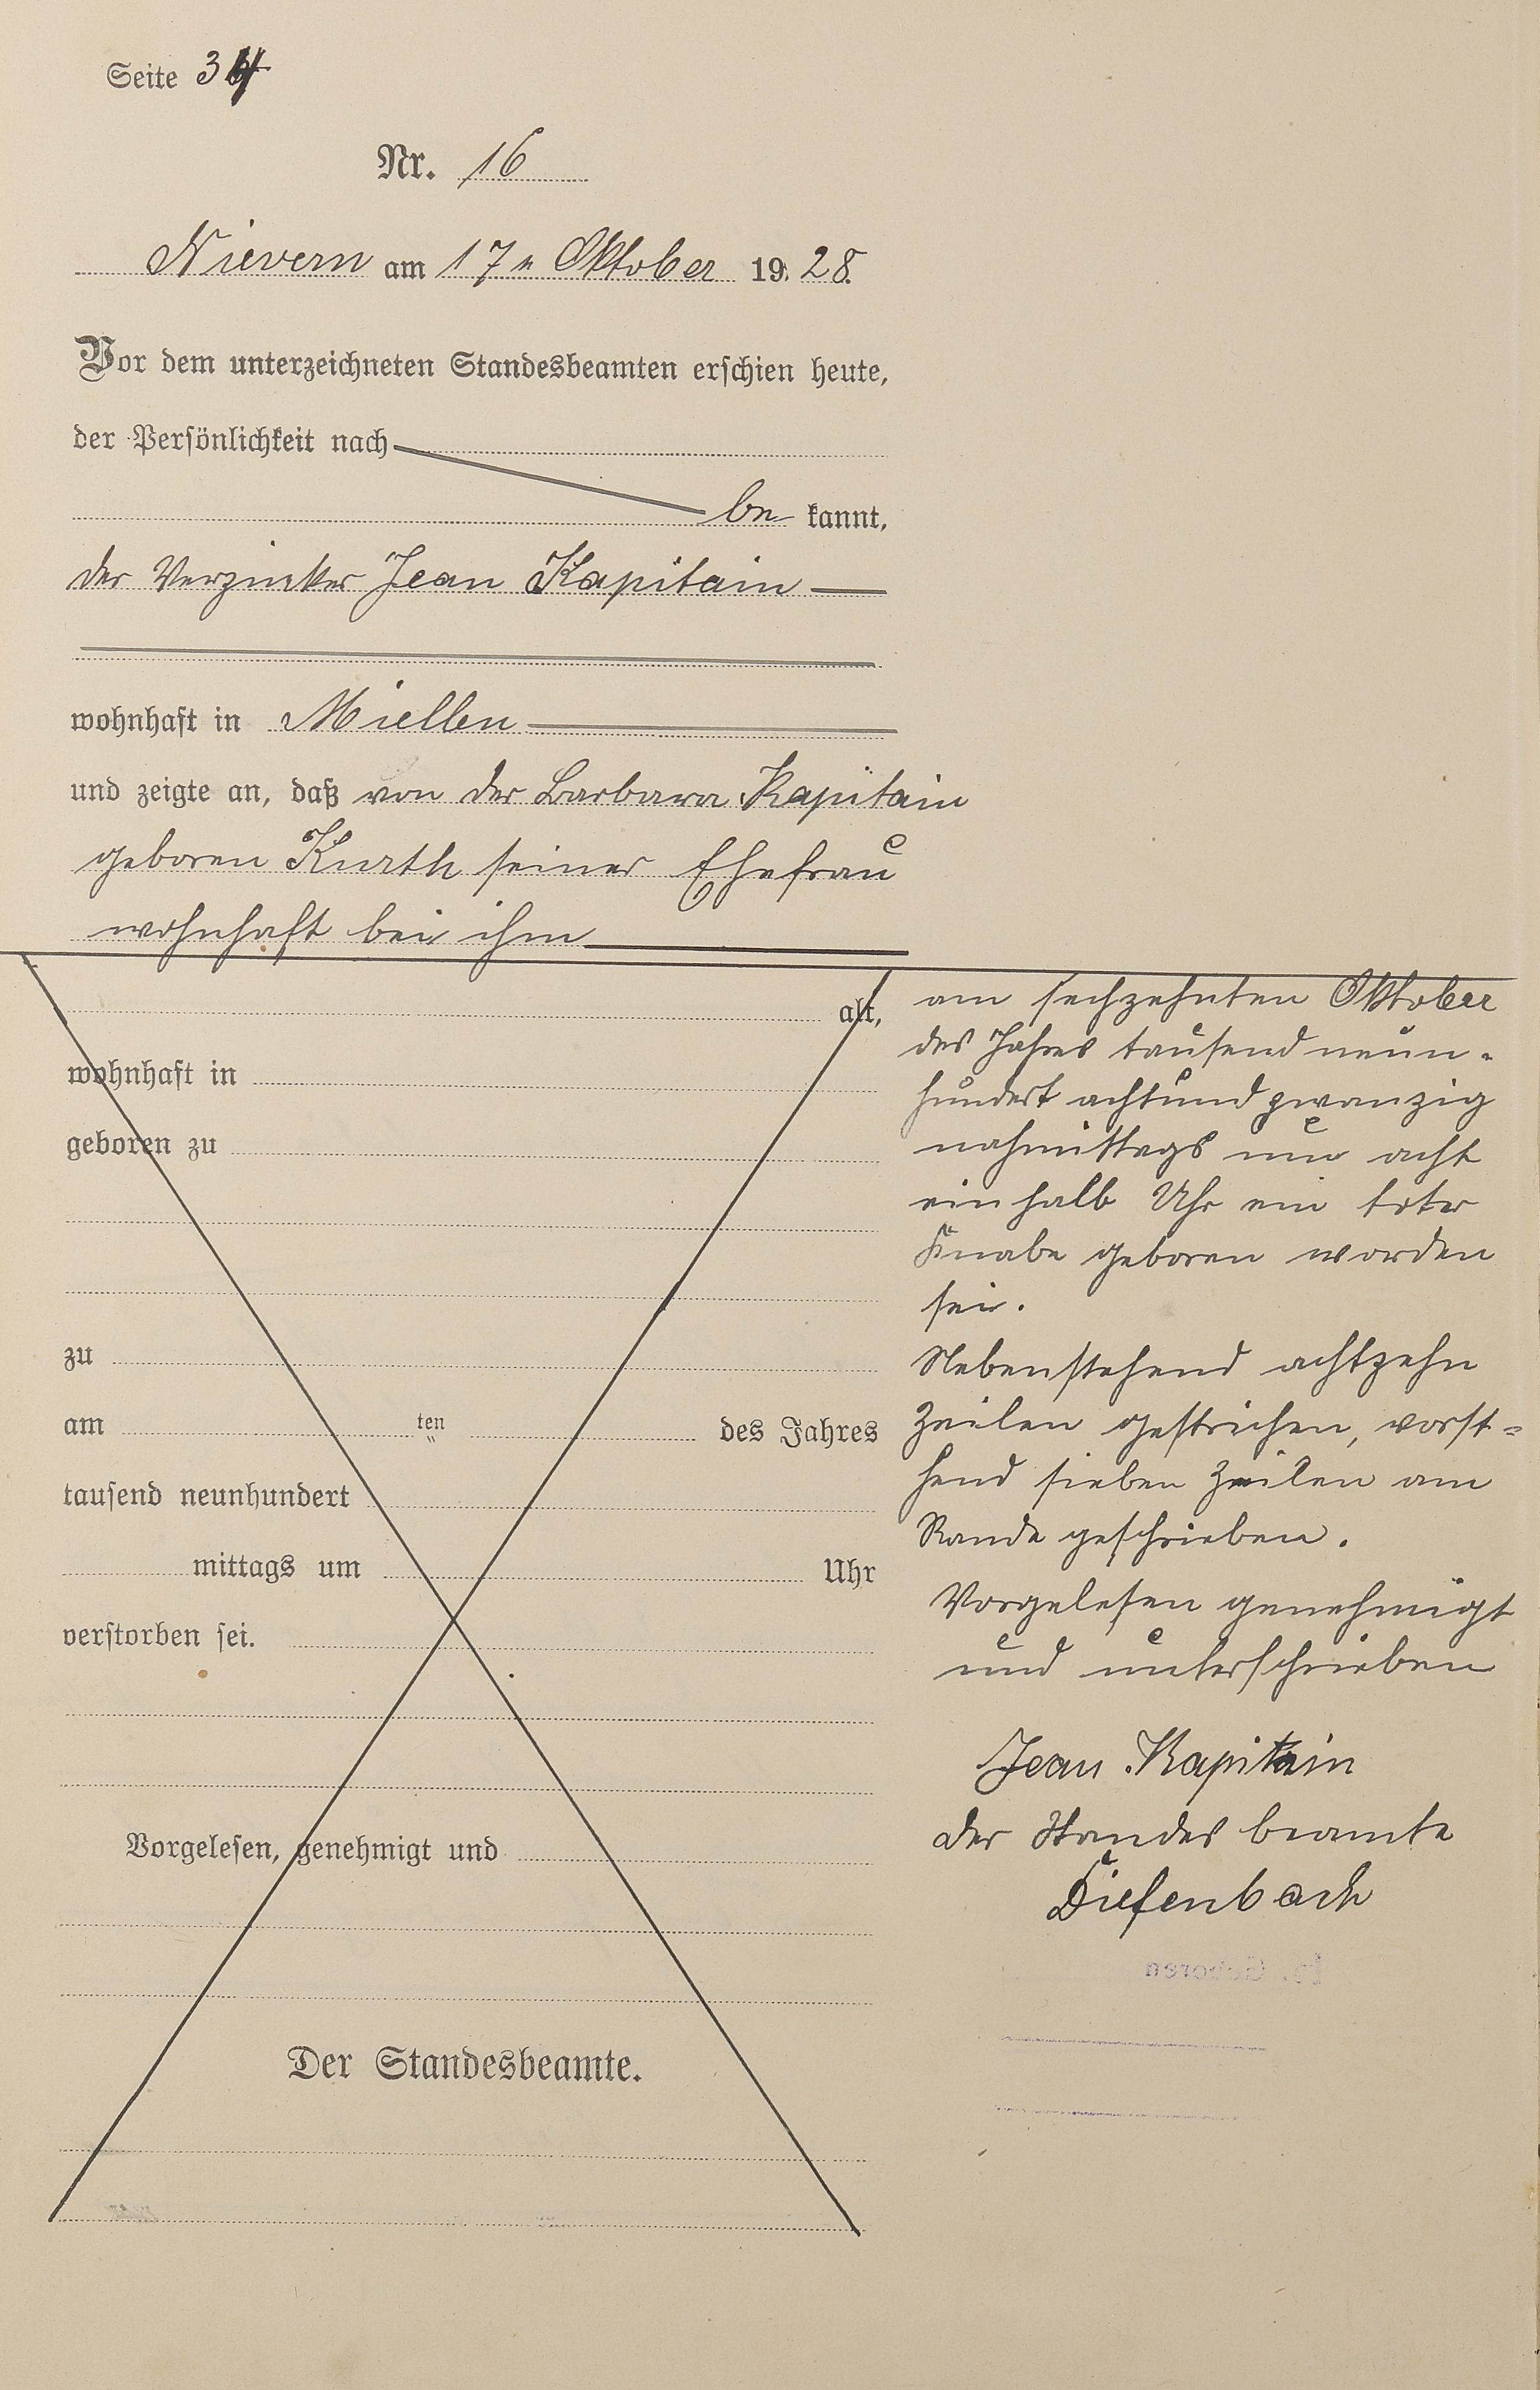 Seite 34
Nr. 16
Nievern am 17n Oktober 1928.
Vor dem unterzeichneten Standesbeamten erschien heute,
der Persönlichkeit nach
be kannt,
der Verzinker Jean Kapitain
wohnhaft in Miellen
und zeigte an, daß von der Barbara Kapitain
geboren Kurth seiner Ehefrau
wohnhaft bei ihm
alt,
wohnhaft in
geboren zu
zu
am ten des Jahres
tausend neunhundert
mittags um Uhr
verstorben sei.
Vorgelesen, genehmigt und
Der Standesbeamte.
am sechzehnten Oktober
des Jahres tausend neun-
hundert achtundzwanzig
nahmittags um acht
einhalb Uhr ein toter
Knabe geboren worden
sei.
Nebenstehend achtzehn
Zeilen gestrichen, vorst-
hend sieben Zeilen am
Rande geschrieben.
Vorgelesen genehmigt
und unterschrieben
Jean Kapitain
der Standesbeamte
Diefenbach